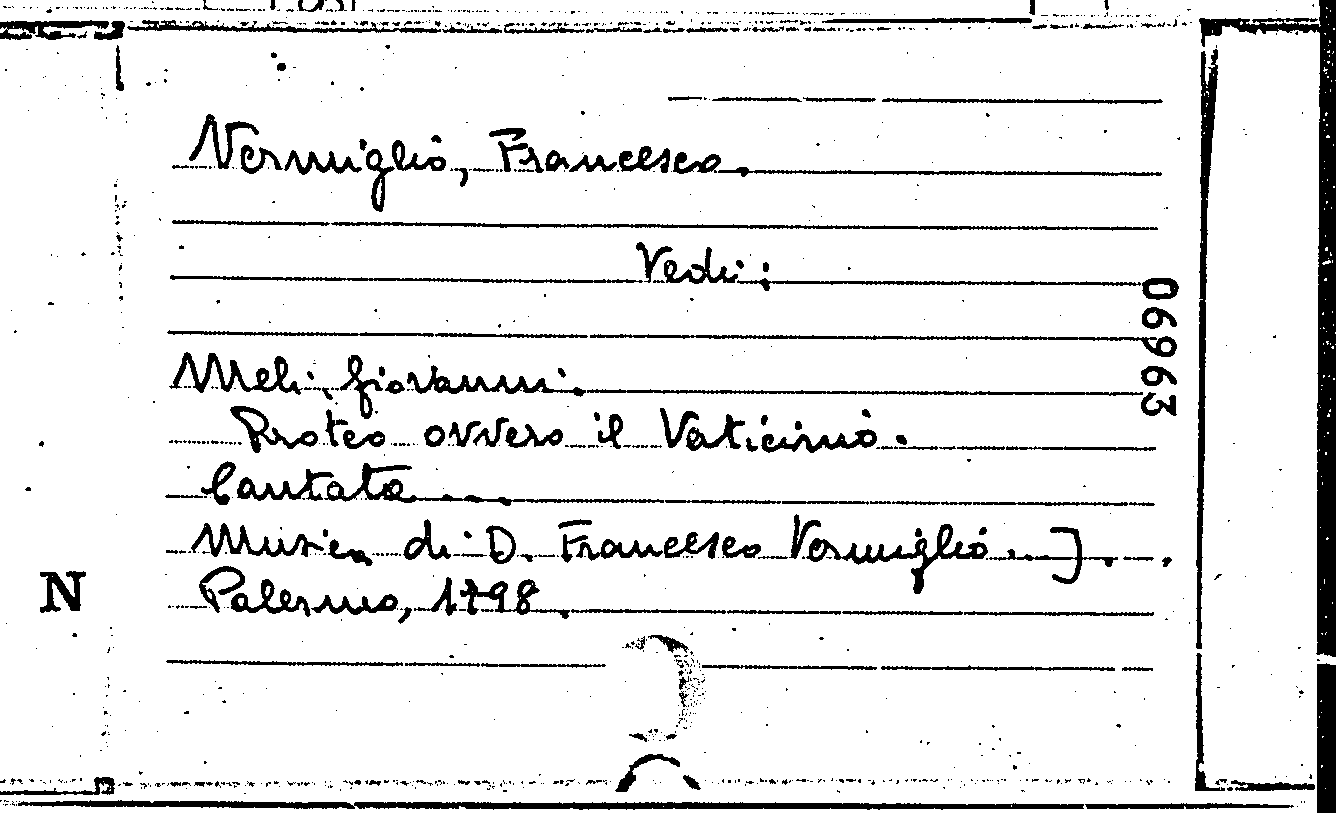 Vermiglio, Francesco.
Vedi:
Meli, Giovanni.
Proteo ovvero il Vaticinio.
Cantata ....
Musica di D. Francesco Vermiglio...].
Palermo, 1798.
N
06963